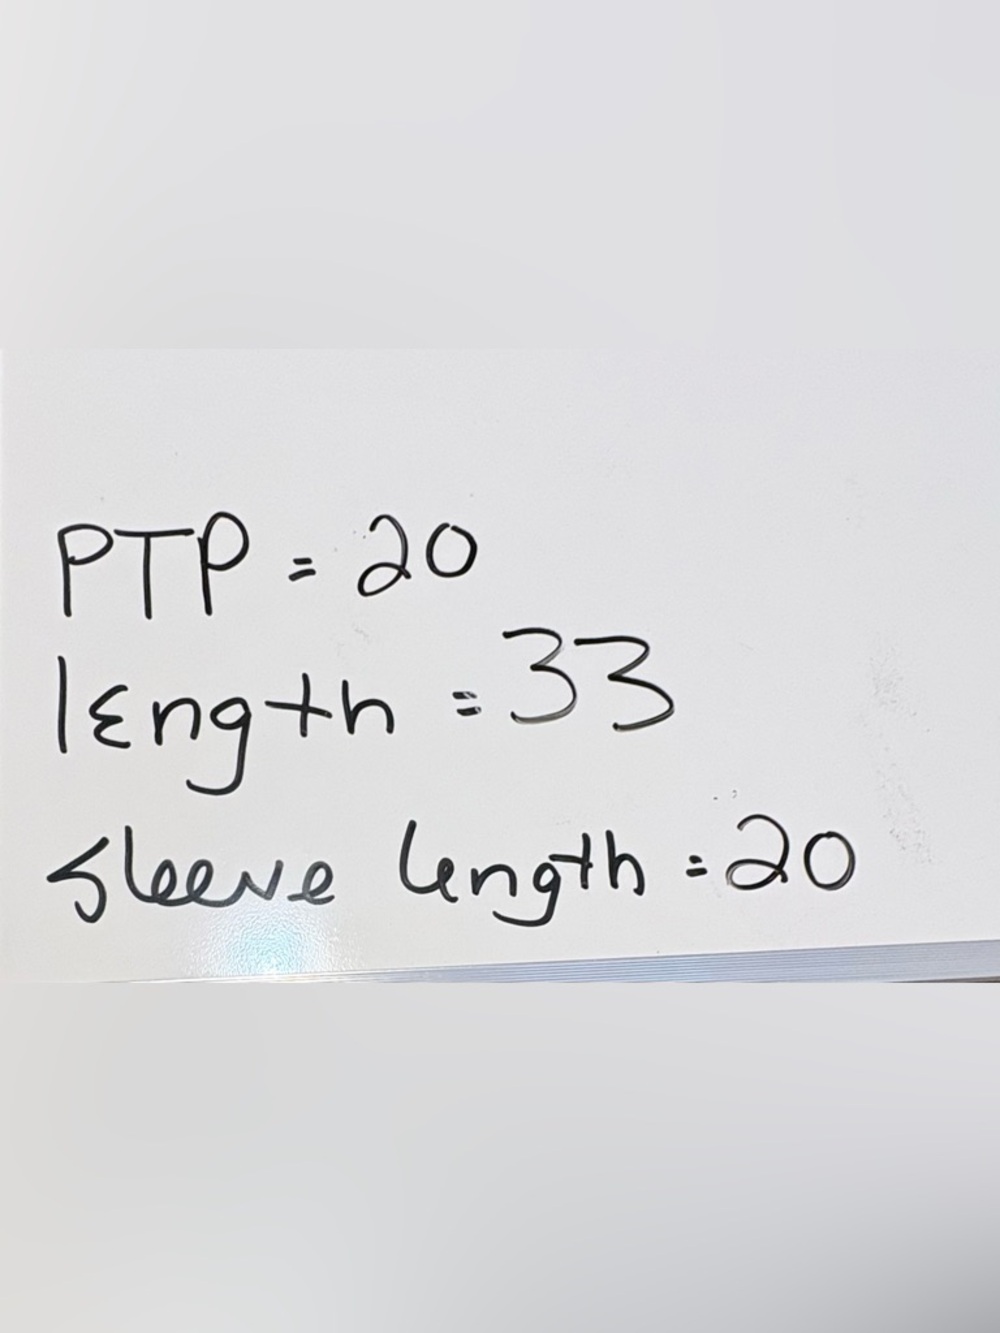 PTP = 20
length = 33
sleeve length = 20